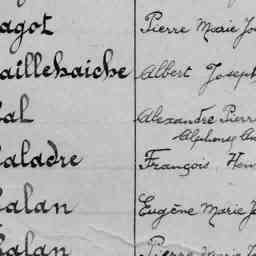 agot Pierre Marie Jo
aillehaiche Albert Joseph
al Alexandre Pierr
Alphonse An
aladre François Hen
alan Eugène Marie J
alan Pierre Marie